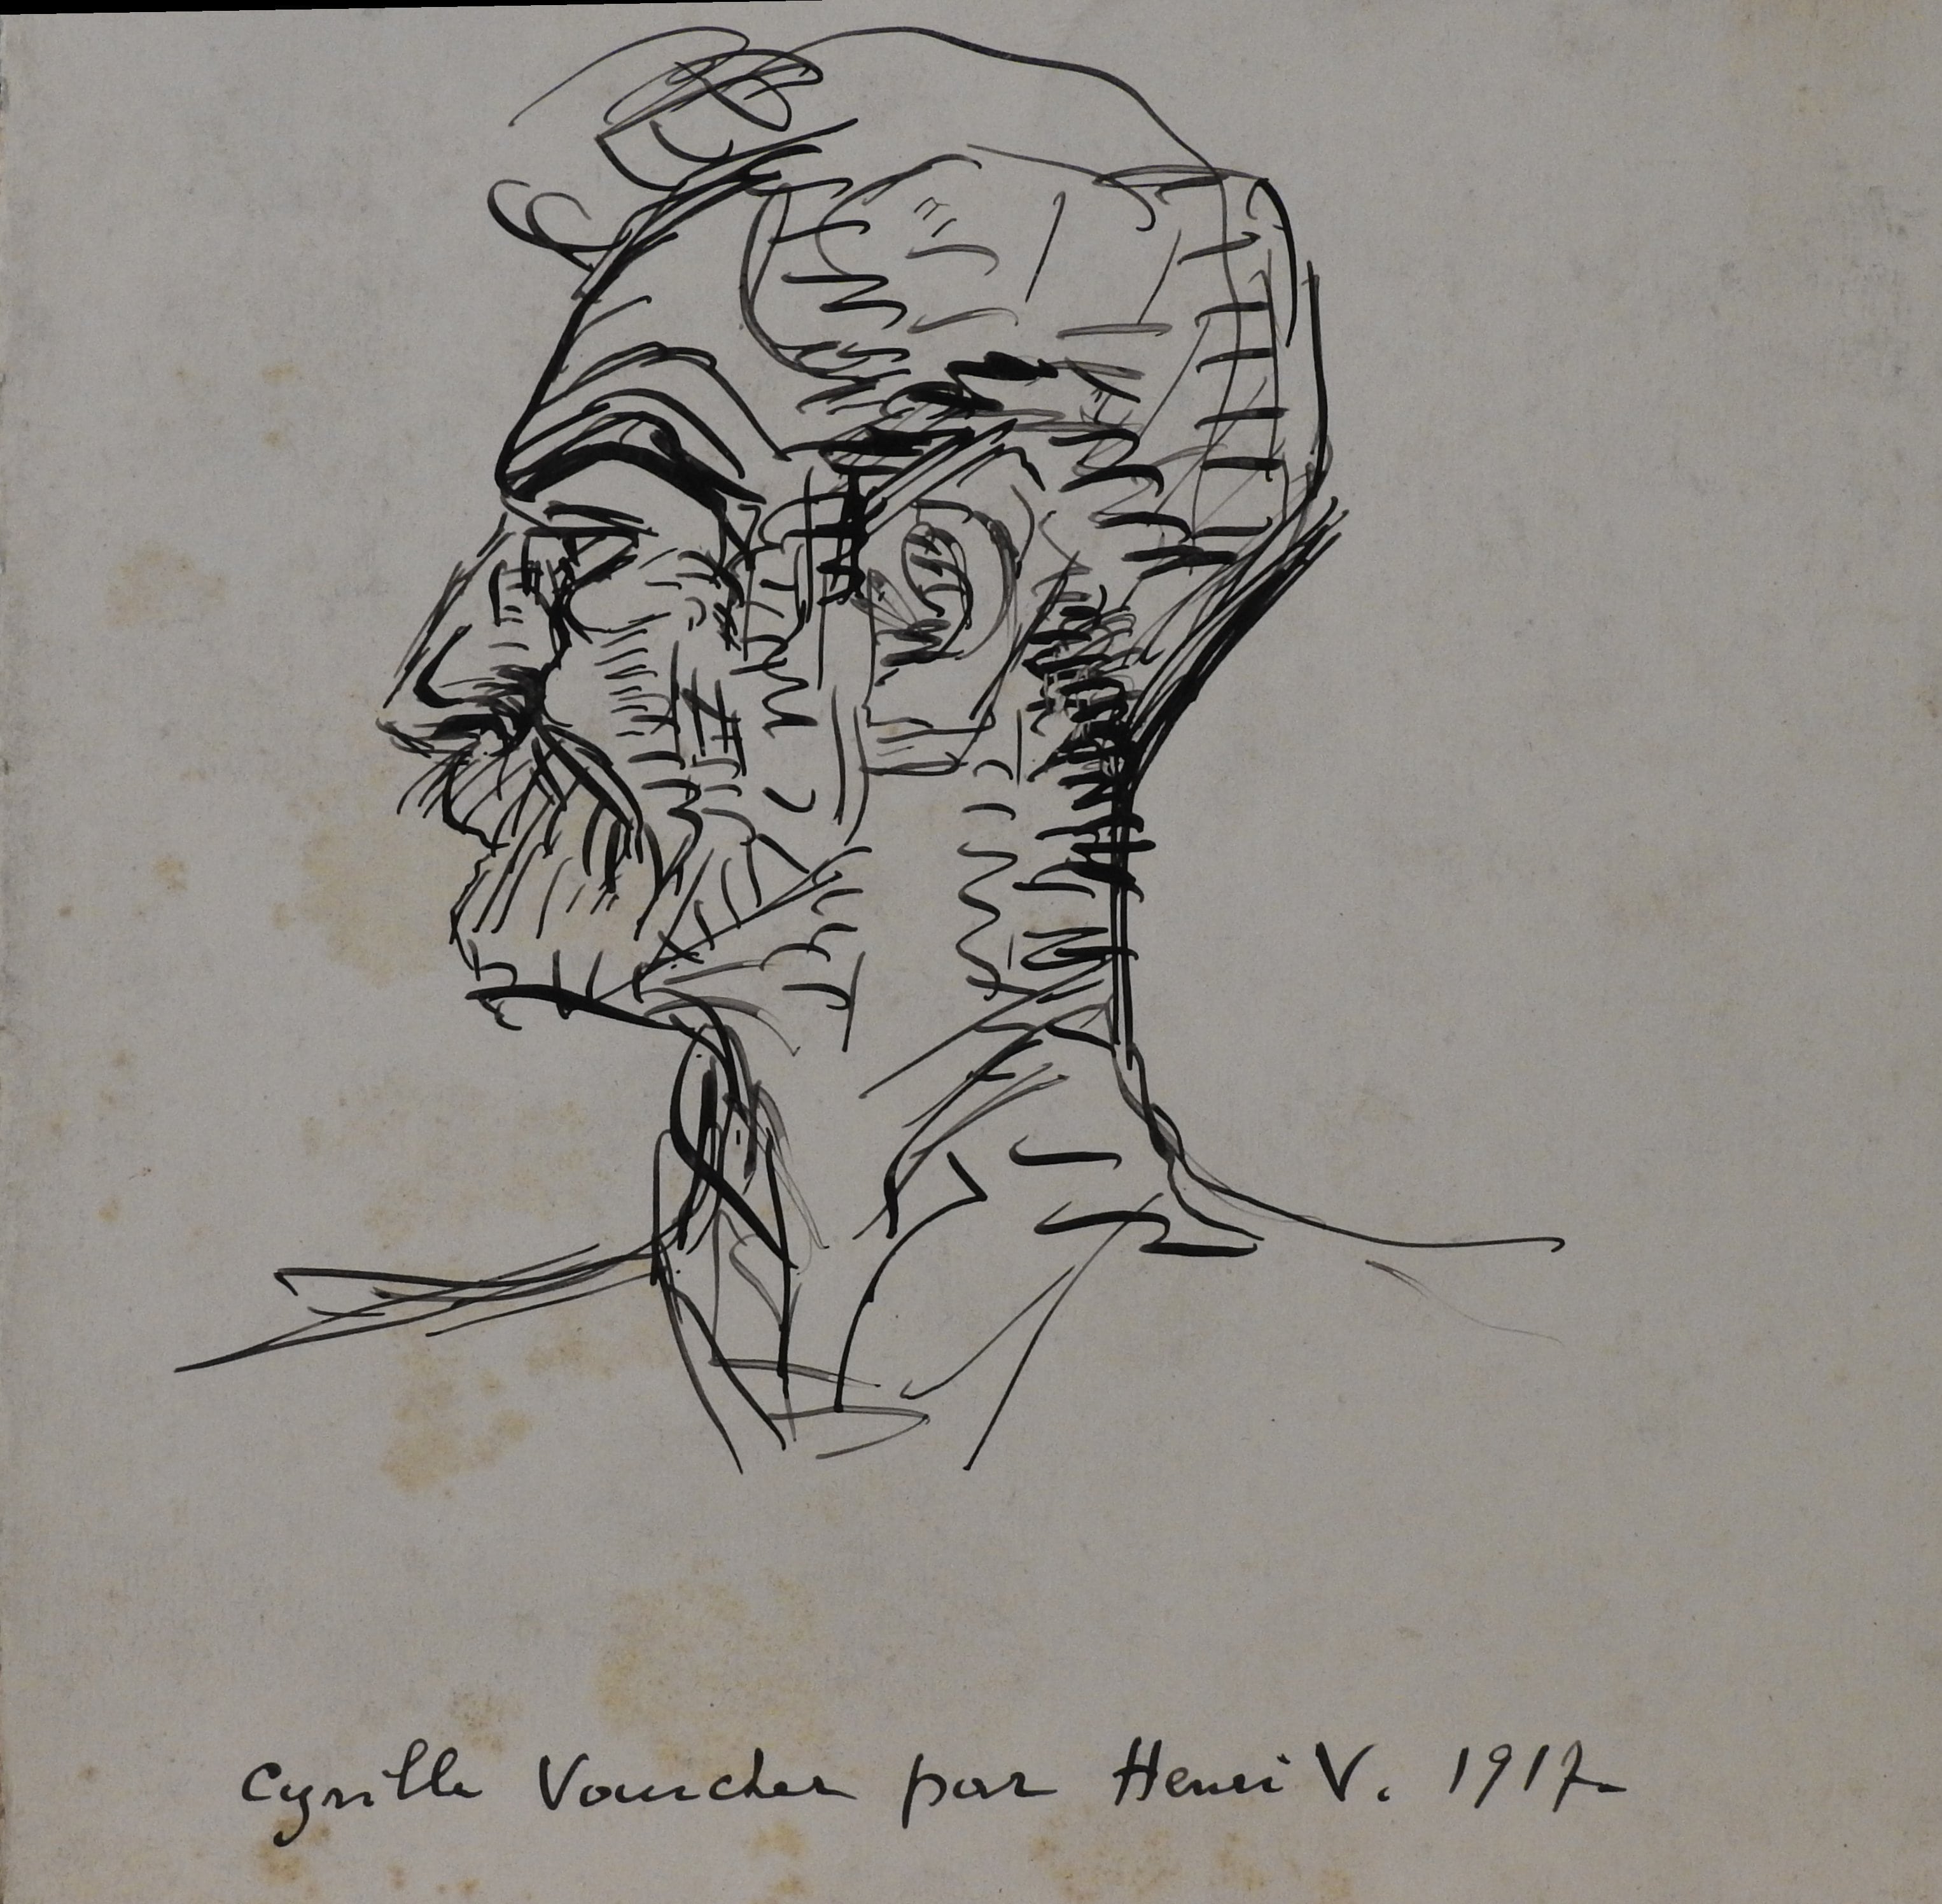 Cyrille Vaucher par Henri V. 1917